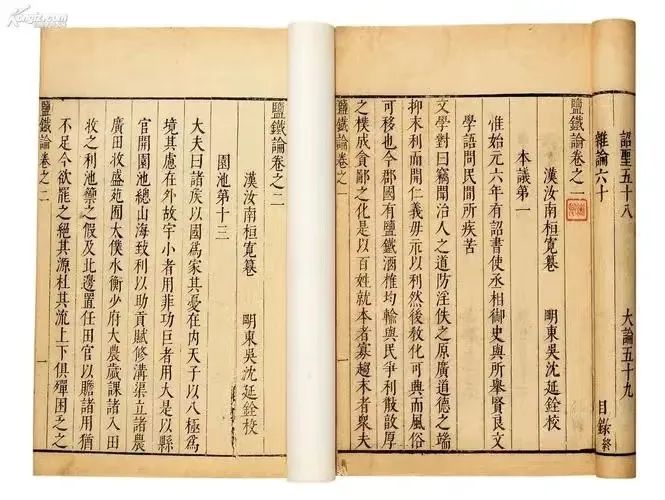 詔聖五十八 大論五十九
雜論六十 目錄終
鹽鐵論卷之一
漢汝南桓寬篹 明東吳沈延銓校
本議第一
惟始元六年有詔書使丞相御史與所舉賢良文
學語問民間所疾苦
文學對曰竊聞治人之道防淫佚之原廣道德之端
抑末利而開仁義毋示以利然後敎化可興而風俗
可移也今郡國有鹽鐵酒榷均輸與民爭利散敦厚
之樸成貪鄙之化是以百姓就本者寡趨末者衆夫
鹽鐵論卷之一 一
鹽鐵論卷之二
漢汝南桓寬篹 明東吳沈延銓校
園池第十三
大夫曰諸矦以國爲家其憂在內天子以八極爲
境其慮在外故宇小者用菲功巨者用大是以縣
官開園池總山海致利以助貢賦修溝渠立諸農
廣田牧盛苑囿大僕水衡少府大農歲課諸入田
牧之利池籞之假及北邊置任田官以贍諸用猶
不足今欲罷之絕其源杜其流上下俱殫困乏之
鹽鐵論卷之二 一